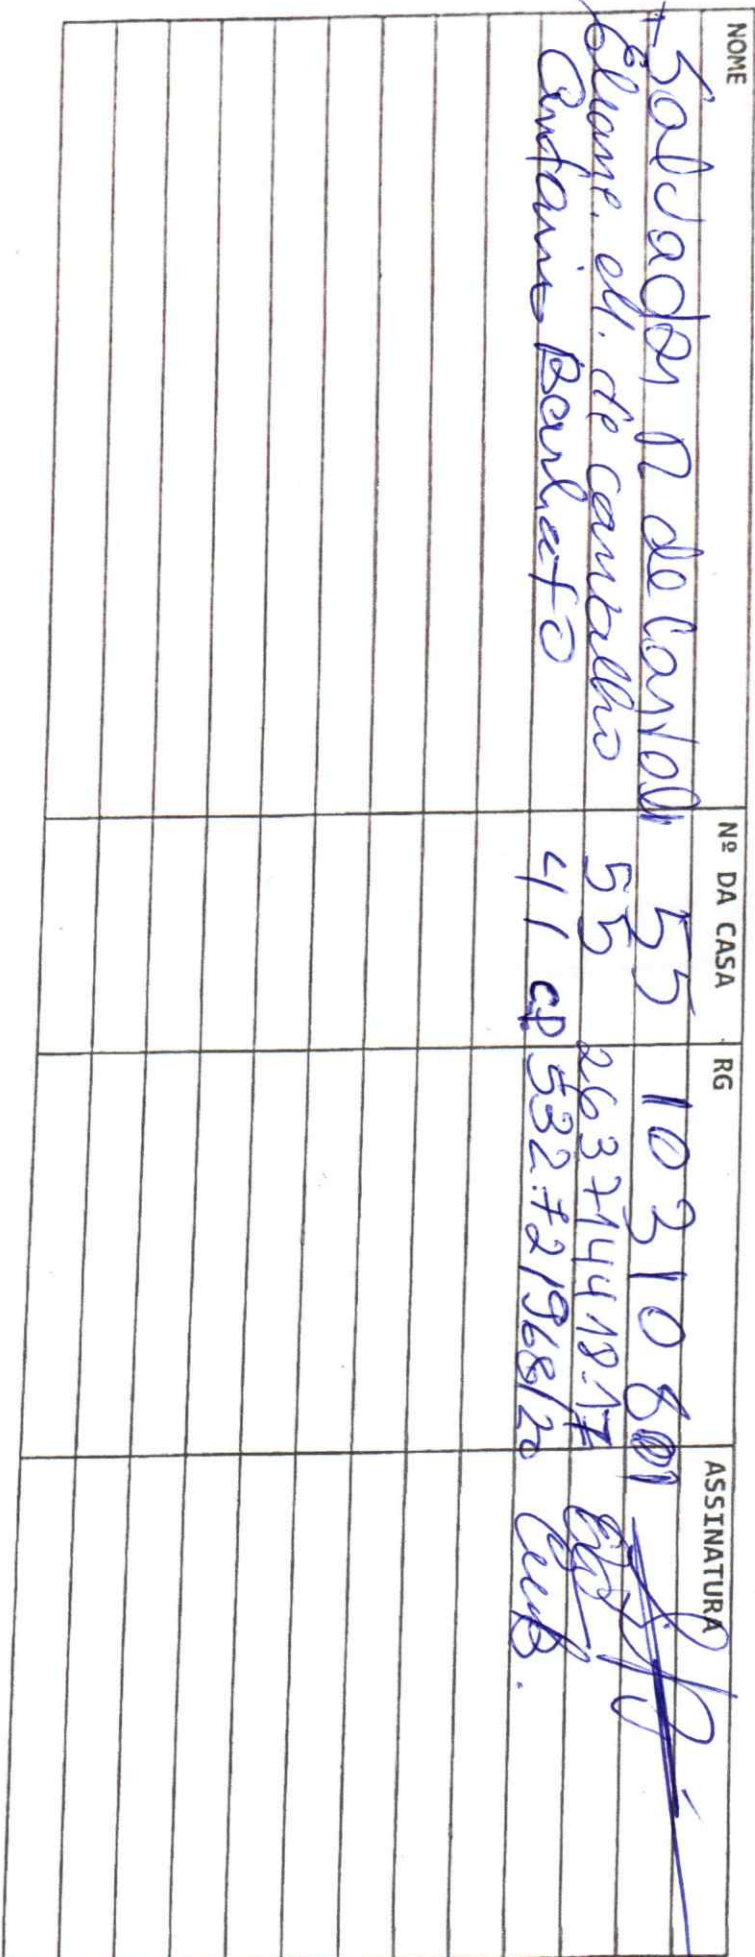 NOME Nº DA CASA RG ASSINATURA
Salvador R de Carval 55 1031080
Eliane. M. de carvalho 55 263714418-17
Antonio Barbato 41 CP 532.721968/20